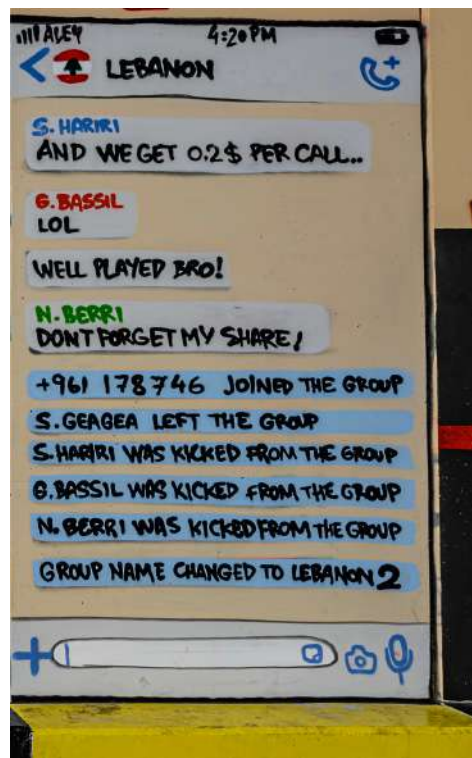 ALEY 4:20 PM
LEBANON
S. HARIRI
AND WE GET 0.2$ PER CALL..
G. BASSIL
LOL
WELL PLAYED BRO!
N. BERRI
DONT FORGET MY SHARE!
+961 178746 JOINED THE GROUP
S. GEAGEA LEFT THE GROUP
S. HARIRI WAS KICKED FROM THE GROUP
G. BASSIL WAS KICKED FROM THE GROUP
N. BERRI WAS KICKED FROM THE GROUP
GROUP NAME CHANGED TO LEBANON 2